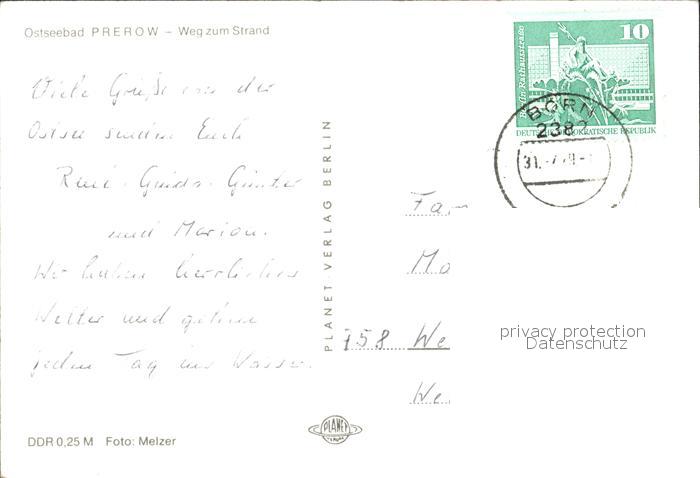 Ostseebad PREROW – Weg zum Strand
Viele Grüße von der
Ostsee senden Euch
René, Guido, Günter
und Marion.
Wir haben herrliches
Wetter und gehen
jeden Tag ins Wasser.
PLANET-VERLAG BERLIN
10
Berlin, Rathausstraße
DEUTSCHE DEMOKRATISCHE REPUBLIK
BORN
2382
Fa
Mo
758 We
We
privacy protection
Datenschutz
PLANET
DDR 0,25 M Foto: Melzer